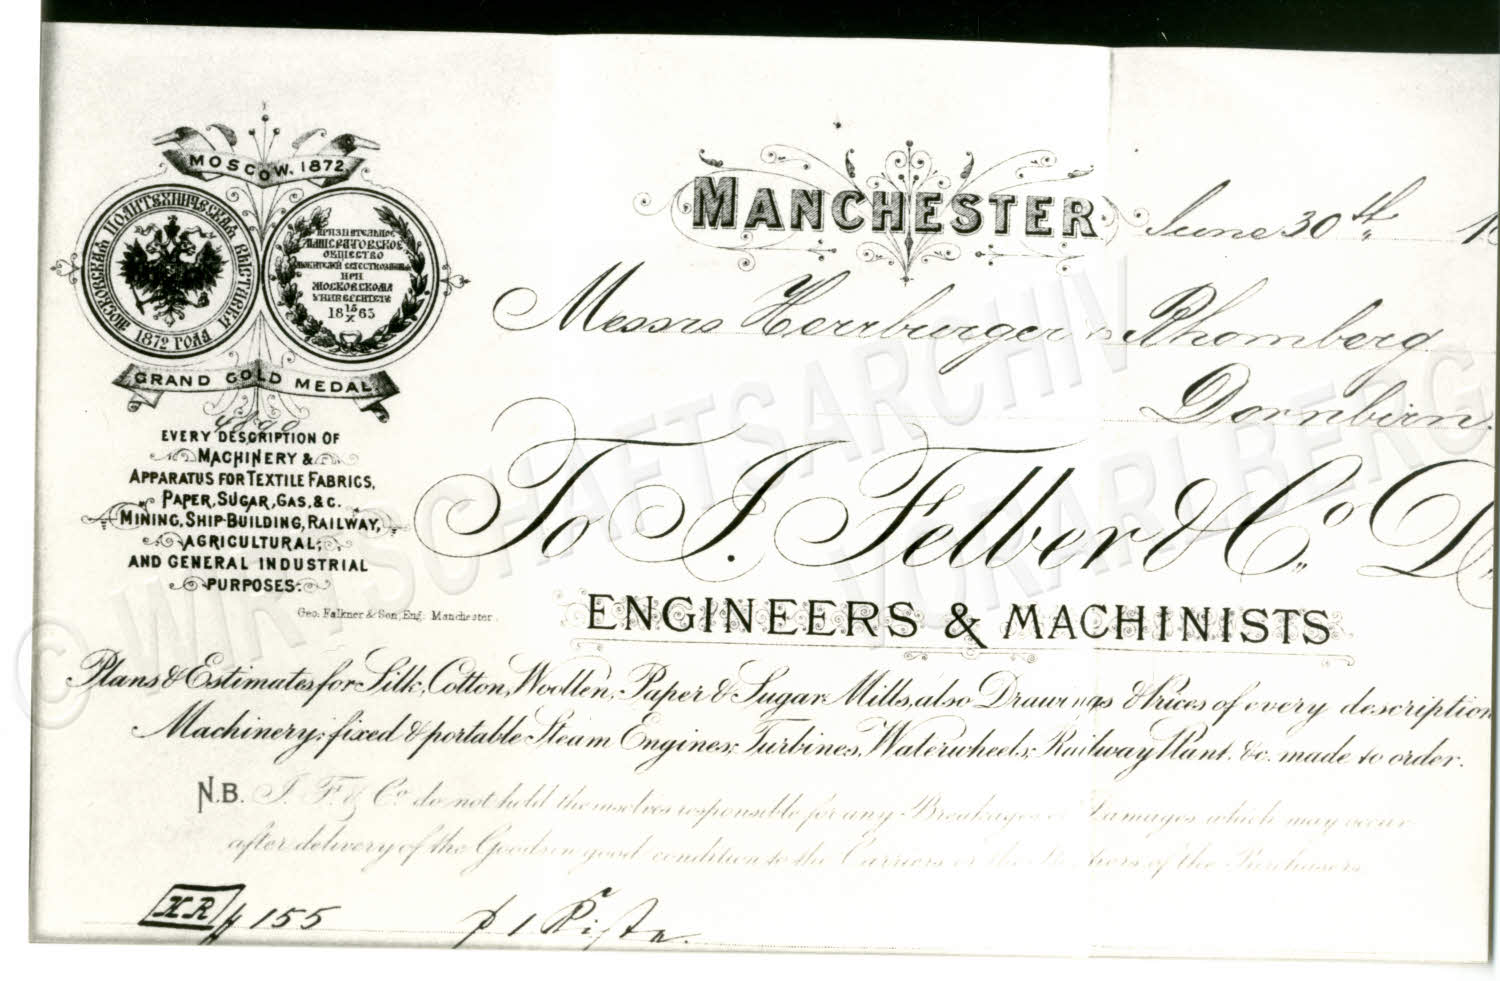 MOSCOW. 1872.
МОСКОВСКАЯ ПОЛИТЕХНИЧЕСКАЯ ВЫСТАВКА
1872 ГОДА
ОБЩЕСТВО
ПРИ
МОСКОВСКОМЪ
УНИВЕРСИТЕТѢ
18 15/X 63
GRAND GOLD MEDAL.
EVERY DESCRIPTION OF
MACHINERY &
APPARATUS FOR TEXTILE FABRICS,
PAPER, SUGAR, GAS, &C.
MINING, SHIP-BUILDING, RAILWAY,
AGRICULTURAL,
AND GENERAL INDUSTRIAL
PURPOSES.
Geo. Falkner & Son, Eng. Manchester.
MANCHESTER June 30th 18
Messrs Herrburger & Rhomberg
Dornbirn.
To J. Felber & Co. Dr.
ENGINEERS & MACHINISTS
Plans & Estimates for Silk, Cotton, Woollen, Paper & Sugar Mills, also Drawings & Prices of every description
Machinery, fixed & portable Steam Engines, Turbines, Waterwheels, Railway Plant. &c. made to order.
N.B. J. F. & Co. do not hold themselves responsible for any Breakages or Damages which may occur
after delivery of the Goods in good condition to the Carriers or the Brokers of the Purchasers.
HR 155 1 Kiste
© WIRTSCHAFTSARCHIV
VORARLBERG